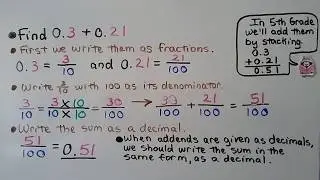 • Find 0.3 + 0.21
• First we write them as fractions.
0.3 = 3/10 and 0.21 = 21/100
• Write 3/10 with 100 as its denominator.
3/10 = 3×10/10×10 = 30/100 → 30/100 + 21/100 = 51/100
• Write the sum as a decimal.
51/100 = 0.51
• When addends are given as decimals,
we should write the sum in the
same form, as a decimal.
In 5th Grade
we'll add them
by stacking.
0.3
+ 0.21
0.51